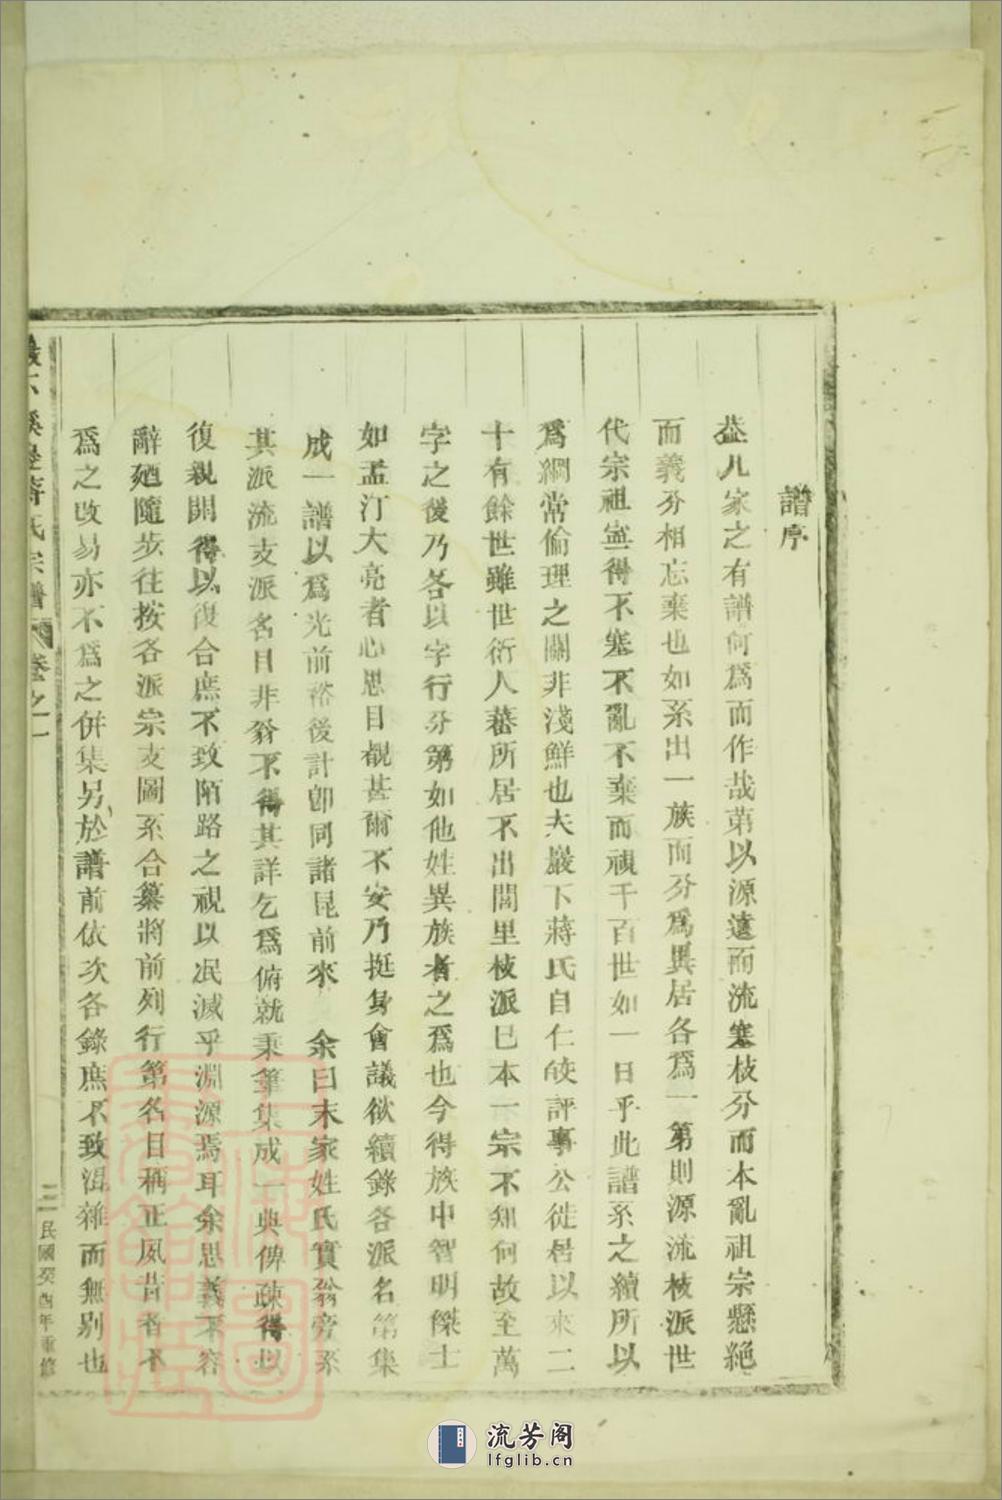 譜序
蓋凡家之有譜何爲而作哉苐以源遠而流塞枝分而本亂祖宗懸絕
而義分相忘棄也如系出一族而分爲異居各爲一第則源流枝派世
代宗祖寕得不塞不亂不棄而視千百世如一日乎此譜系之續所以
爲綱常倫理之關非淺鮮也夫巖下蔣氏自仁皎評事公徙居以來二
十有餘世雖世衍人蕃所居不出閭里枝派巳本一宗不知何故至萬
字之後乃各以字行分第如他姓異族者之爲也今得族中智明傑士
如孟汀大亮者心思目覩甚爾不安乃挺身會議欲續錄各派名第集
成一譜以爲光前裕後計卽同諸昆前來 余曰末家姓氏實翁旁系
其派流支派名目非翁不得其詳乞爲俯就秉筆集成一典俾疎得以
復親開得以復合庶不致陌路之視以泯滅乎淵源焉耳余思義不容
辭廼隨步往按各派宗支圖系合纂將前列行第名目稱正夙昔者不
爲之改易亦不爲之併集另於譜前依次各錄庶不致混雜而無别也
巖下 蔣氏宗譜 卷之一
二 民國癸酉年重修
流芳阁
lfglib.cn